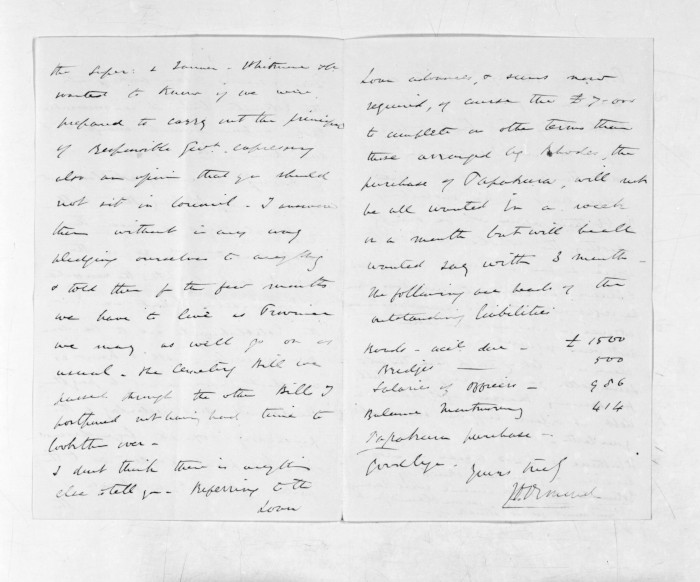 the Super: & Tanner - Whitmore &c
wanted to know if we were
prepared to carry out the principle
of Responsible Govt. expressing
also an opinion that you should
not sit in Council - I answered
them without in any way
pledging ourselves to anything
& told them for the few months
we have to live as Province
we may as well go on as
usual - the Cemetery Bill we
passed through the other Bill I
postponed not having had time to
look them over -
I dont think there is anything
else to tell you - Referring to the
Loan
Loan advances, & sums now
required, of course the £7000
to complete on other terms than
those arranged by Rhodes, the
purchase of Papakura, will not
be all wanted in a week
or a month but will be all
wanted say within 3 months -
the following are heads of the
outstanding liabilities
Roads - acct due - £1500
Bridges — 500
Salaries of Officers - 986
Balance 414
Papakura purchase -
Goodbye - Yours truly
J D Ormond